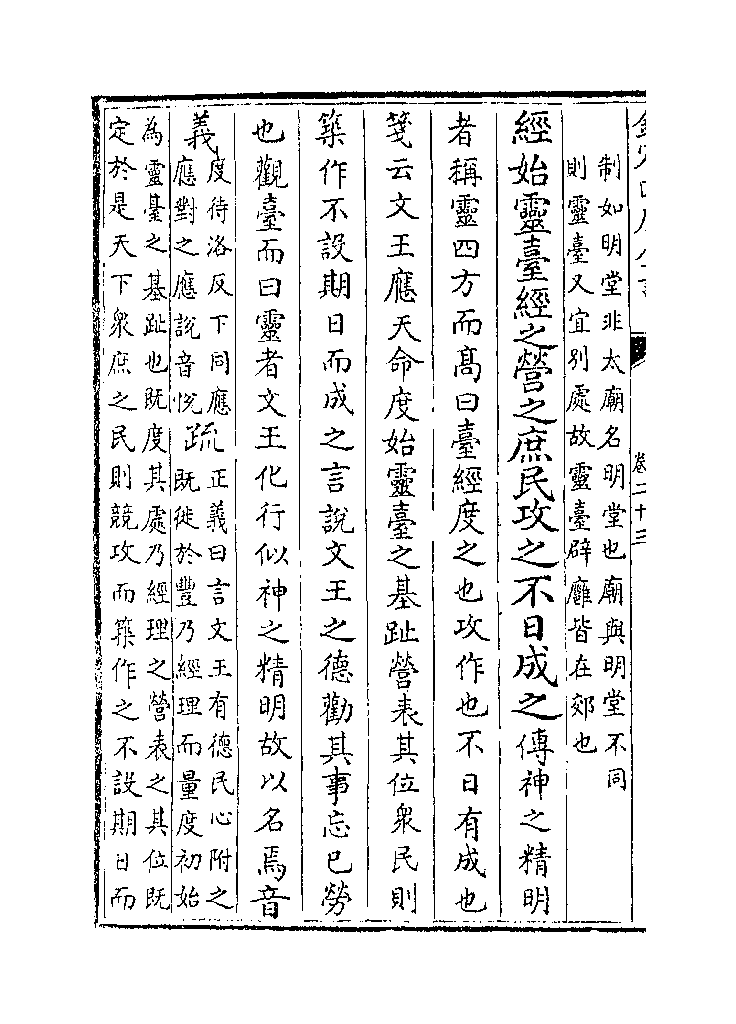 欽定四庫全書
卷二十三
制如明堂非太廟名明堂也廟與明堂不同
則靈臺又宜別處故靈臺辟廱皆在郊也
經始靈臺經之營之庶民攻之不日成之傳神之精明
者稱靈四方而髙曰臺經度之也攻作也不日有成也
箋云文王應天命度始靈臺之基趾營表其位衆民則
築作不設期日而成之言說文王之德勸其事忘已勞
也觀臺而曰靈者文王化行似神之精明故以名焉音
義度待洛反下同應應對之應說音悅疏正義曰言文王有德民心附之既徙於豐乃經理而量度初始
為靈臺之基趾也既度其處乃經理之營表之其位既
定於是天下衆庶之民則競攻而築作之不設期日而